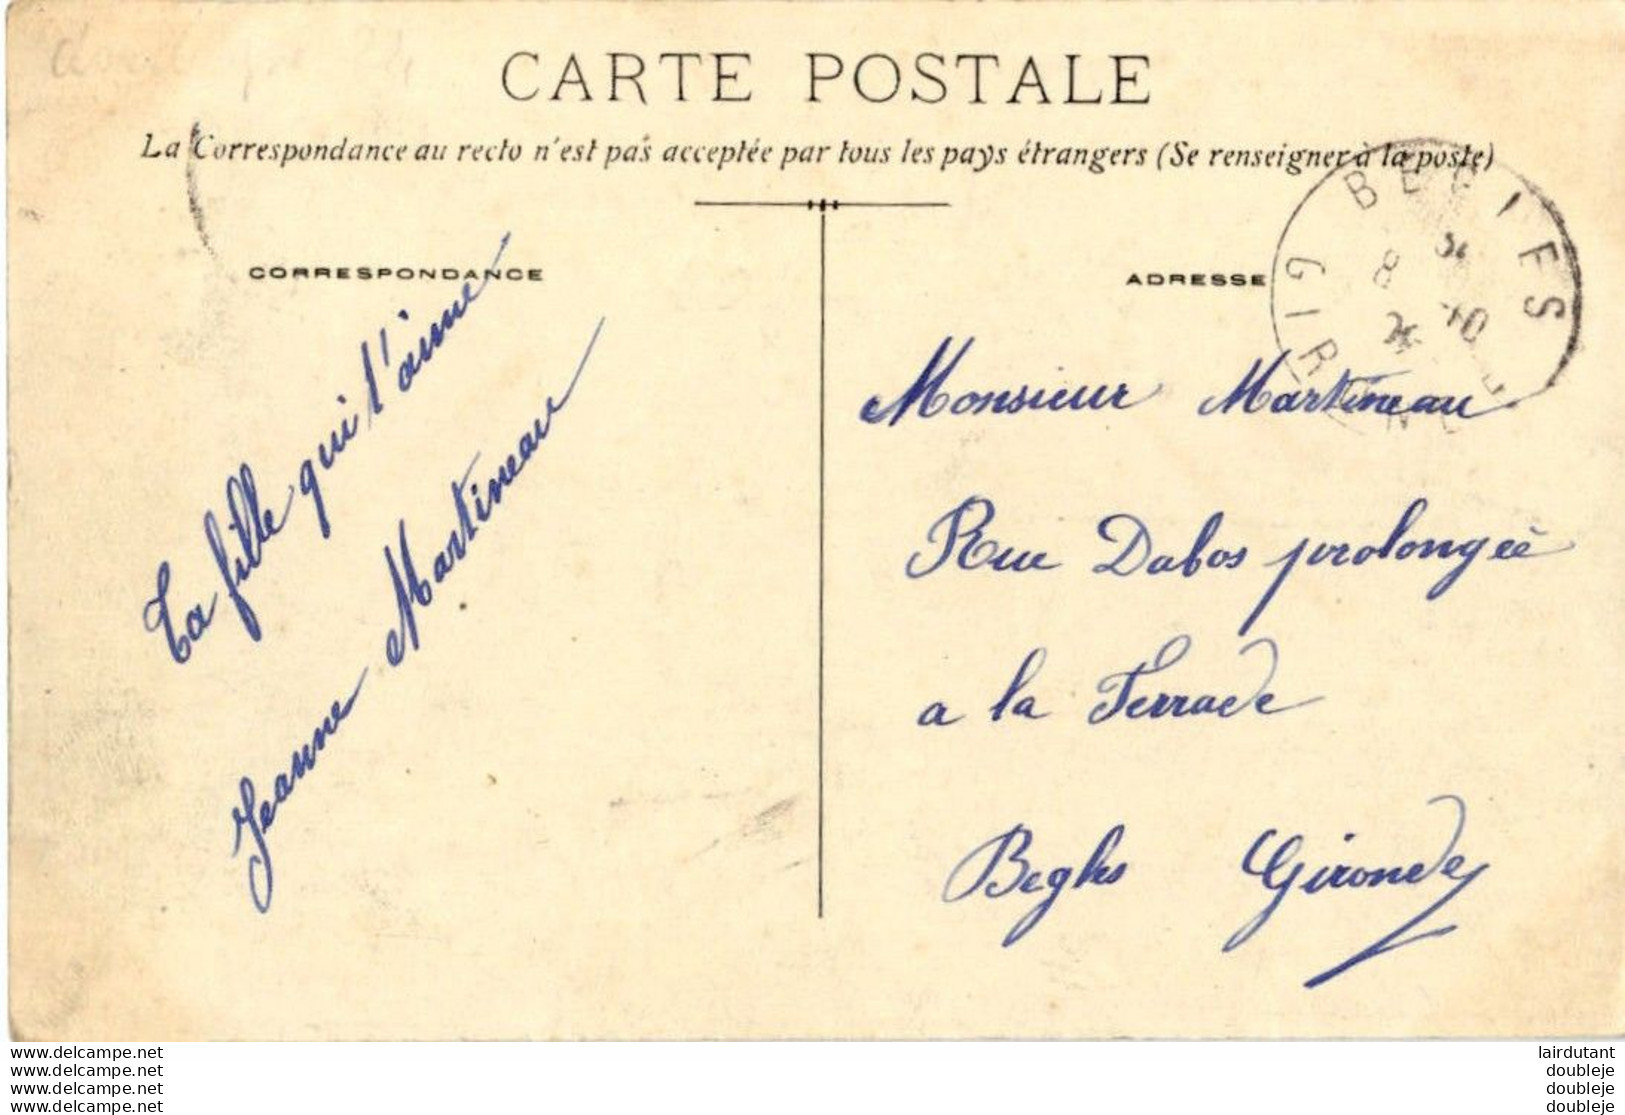 CARTE POSTALE
La Correspondance au recto n'est pas acceptée par tous les pays étrangers (Se renseigner à la poste)
CORRESPONDANCE
Ta fille qui t'aime
Jeanne Martineau
ADRESSE
Monsieur Martineau
Rue Dubos prolongée
a la Ferrade
Begles Gironde
BEGLES
GIRONDE
www.delcampe.net
www.delcampe.net
www.delcampe.net
www.delcampe.net
lairdutant
doubleje
doubleje
doubleje